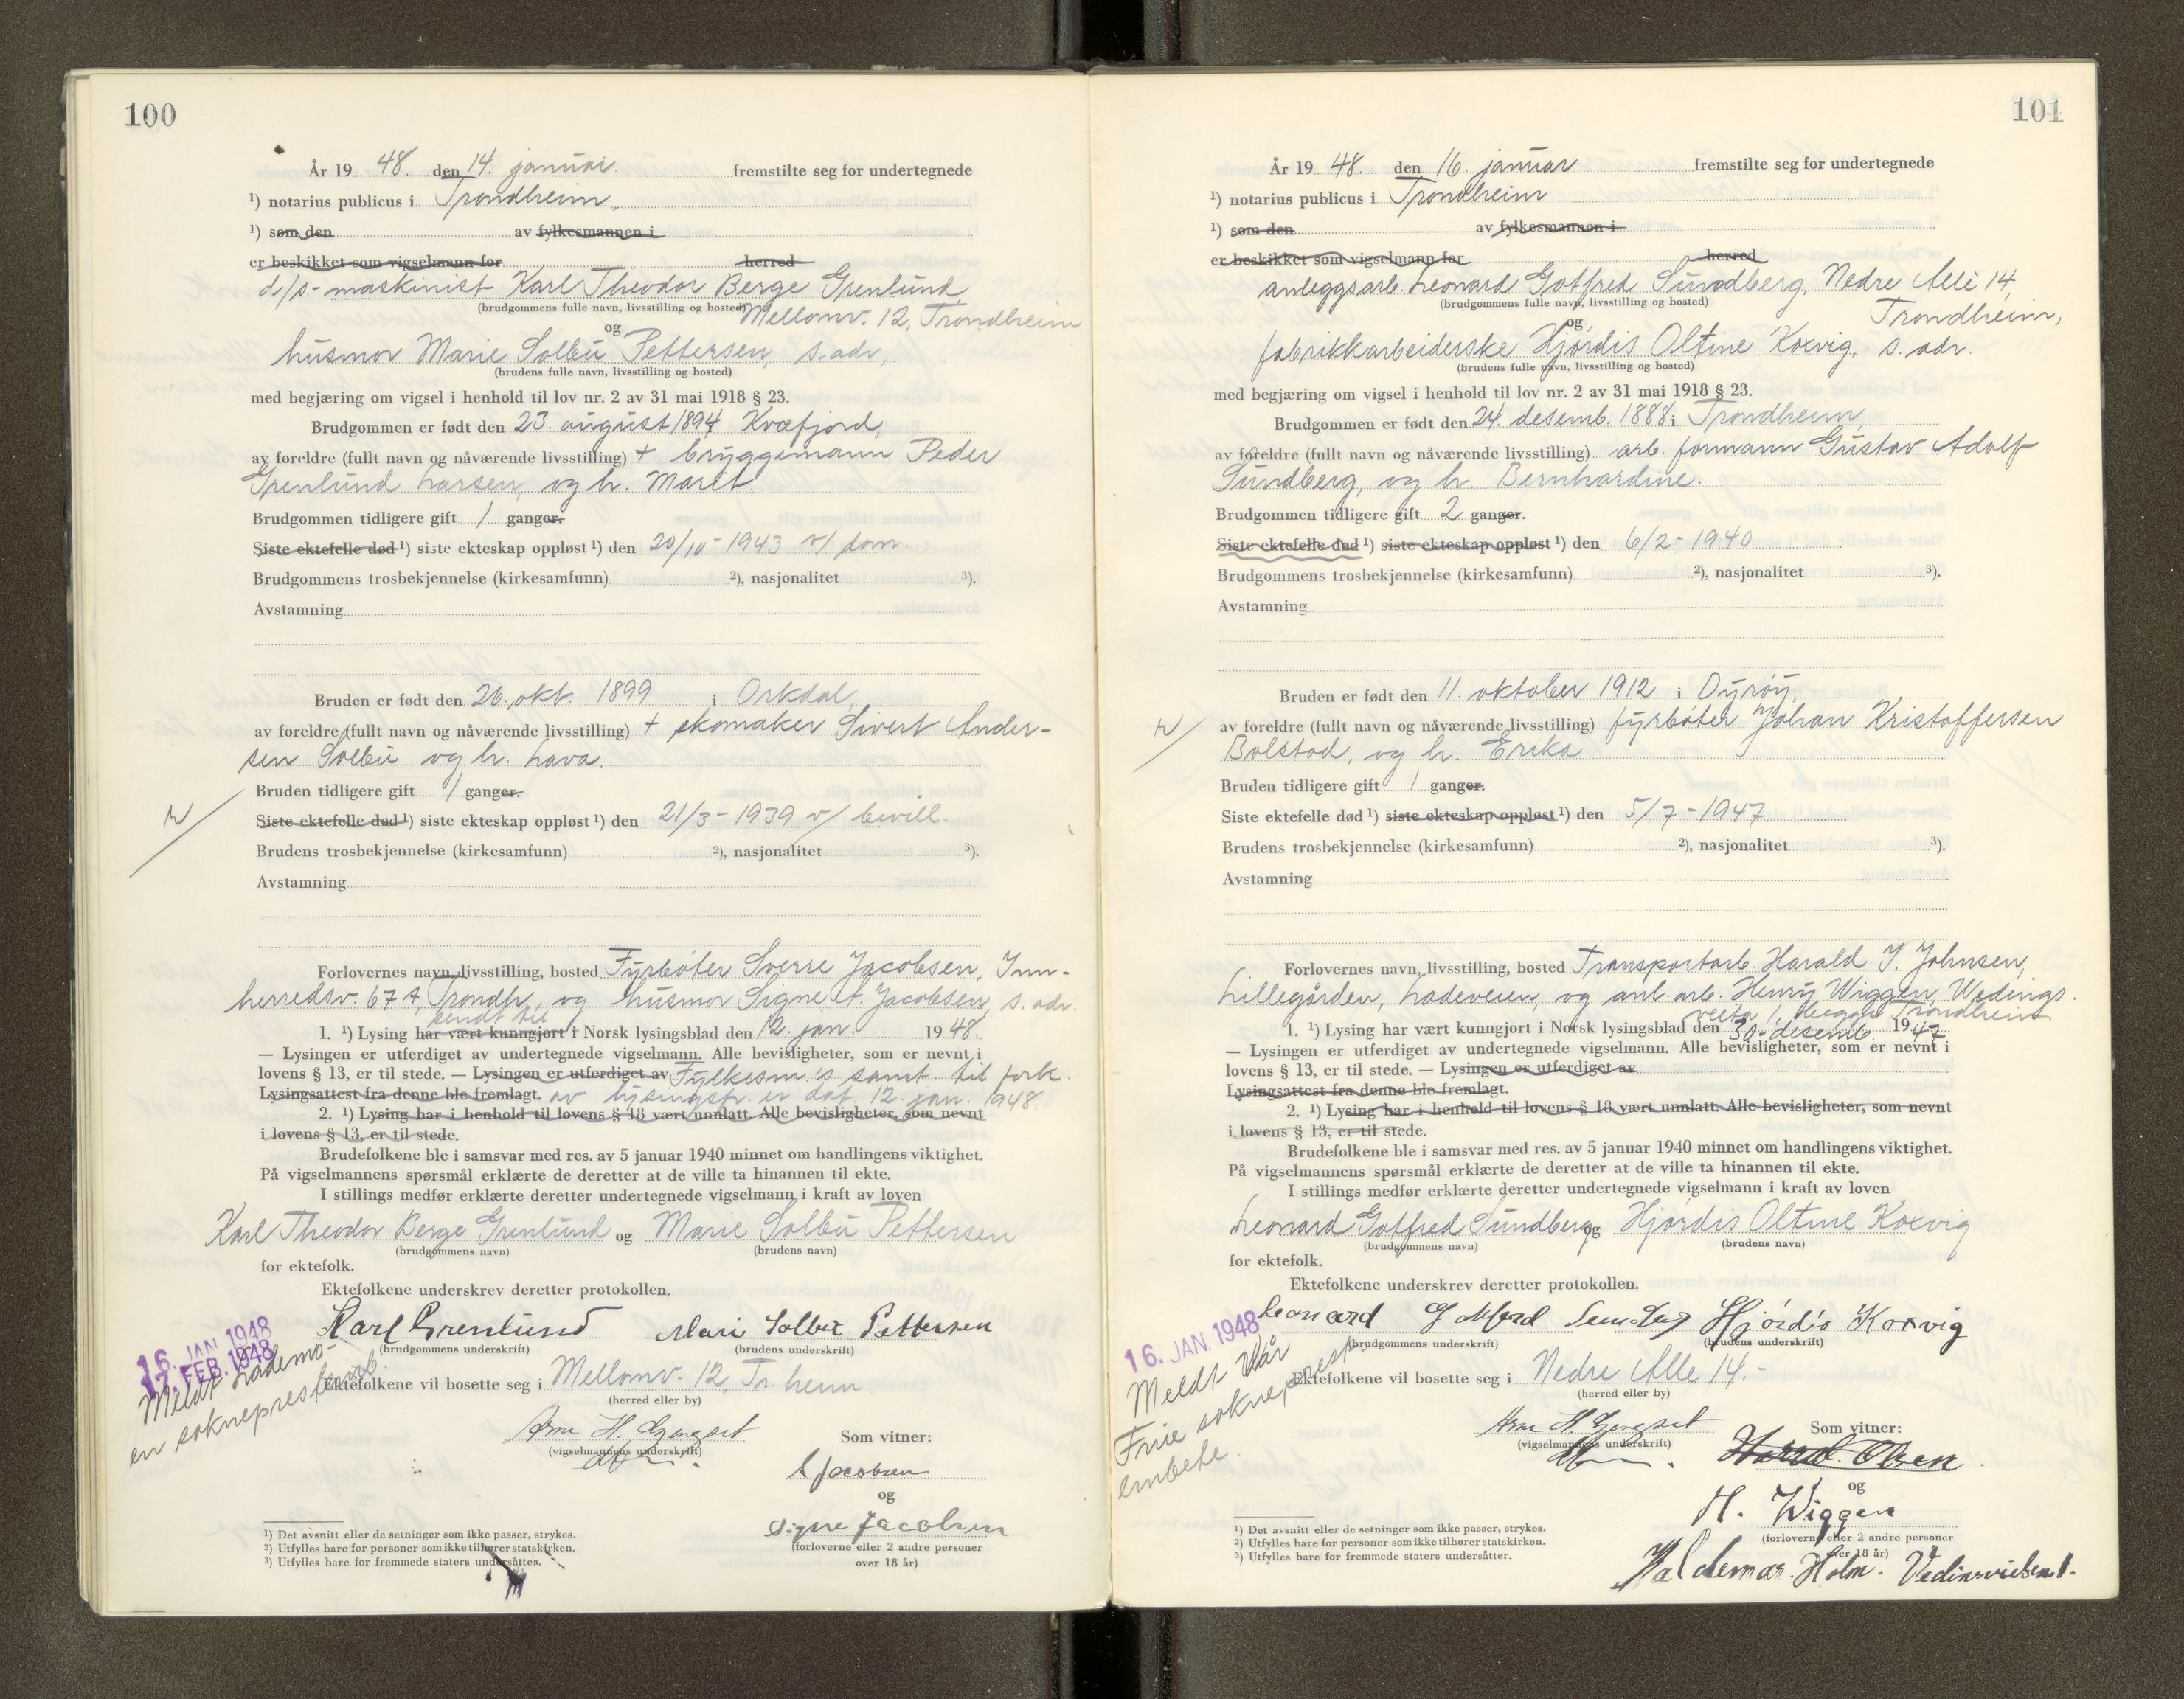 100
År 19 48. den 14. januar. fremstilte seg for undertegnede
¹) notarius publicus i Trondheim,
¹) som den av fylkesmannen i
er beskikket som vigselmann for herred
d/s-maskinist Karl Theodor Berge Grenlund,
(brudgommens fulle navn, livsstilling og bosted)
Mellomv. 12, Trondheim
og
husmor Marie Solbu Pettersen, s. adr.,
(brudens fulle navn, livsstilling og bosted)
med begjæring om vigsel i henhold til lov nr. 2 av 31 mai 1918 § 23.
Brudgommen er født den 23. august 1894 Kvæfjord,
av foreldre (fullt navn og nåværende livsstilling) + bryggemann Peder
Grenlund Larsen, og h. Marit.
Brudgommen tidligere gift 1 ganger.
Siste ektefelle død ¹) siste ekteskap oppløst ¹) den 20/10-1943 v/ dom.
Brudgommens trosbekjennelse (kirkesamfunn) ²), nasjonalitet ³).
Avstamning
Bruden er født den 26. okt. 1899 i Orkdal,
av foreldre (fullt navn og nåværende livsstilling) + skomaker Sivert Ander-
sen Solbu og h. Lava.
Bruden tidligere gift 1 ganger.
Siste ektefelle død ¹) siste ekteskap oppløst ¹) den 21/3-1939 v/ bevill.
Brudens trosbekjennelse (kirkesamfunn) ²), nasjonalitet ³).
Avstamning
Forlovernes navn, livsstilling, bosted Fyrbøter Sverre Jacobsen, Inn-
herredsv. 67 A, Trondh., og husmor Signe A. Jacobsen, s. adr.
sendt til
1. ¹) Lysing har vært kunngjort i Norsk lysingsblad den 12. jan. 1948.
— Lysingen er utferdiget av undertegnede vigselmann. Alle bevisligheter, som er nevnt i
lovens § 13, er til stede. — Lysingen er utferdiget av Fylkesm.'s samt. til fork.
Lysingsattest fra denne ble fremlagt. av lysingsfr. er dat. 12. jan. 1948.
2. ¹) Lysing har i henhold til lovens § 18 vært unnlatt. Alle bevisligheter, som nevnt
i lovens § 13, er til stede.
Brudefolkene ble i samsvar med res. av 5 januar 1940 minnet om handlingens viktighet.
På vigselmannens spørsmål erklærte de deretter at de ville ta hinannen til ekte.
I stillings medfør erklærte deretter undertegnede vigselmann i kraft av loven
Karl Theodor Berge Grenlund og Marie Solbu Pettersen
(brudgommens navn) (brudens navn)
for ektefolk.
Ektefolkene underskrev deretter protokollen.
Karl Grenlund Mari Solbu Pettersen
(brudgommens underskrift) (brudens underskrift)
16. JAN. 1948
17. FEB. 1948
Meldt Lademo-
en sokneprestemb.
Ektefolkene vil bosette seg i Mellomv. 12, Tr.heim
(herred eller by)
Arne H. Gjengset
(vigselmannens underskrift)
Som vitner:
S Jacobsen
og
Signe Jacobsen
(forloverne eller 2 andre personer
over 18 år)
¹) Det avsnitt eller de setninger som ikke passer, strykes.
²) Utfylles bare for personer som ikke tilhører statskirken.
³) Utfylles bare for fremmede staters undersåtter.
101
År 19 48. den 16. januar fremstilte seg for undertegnede
¹) notarius publicus i Trondheim
¹) som den av fylkesmannen i
er beskikket som vigselmann for herred
anleggsarb. Leonard Gotfred Sundberg, Nedre Allé 14,
(brudgommens fulle navn, livsstilling og bosted)
Trondheim,
og
fabrikkarbeiderske Hjørdis Oltine Koxvig, s. adr.
(brudens fulle navn, livsstilling og bosted)
med begjæring om vigsel i henhold til lov nr. 2 av 31 mai 1918 § 23.
Brudgommen er født den 24. desemb. 1888 i Trondheim,
av foreldre (fullt navn og nåværende livsstilling) arb. formann Gustav Adolf
Sundberg, og h. Bernhardine.
Brudgommen tidligere gift 2 ganger.
Siste ektefelle død ¹) siste ekteskap oppløst ¹) den 6/2-1940
Brudgommens trosbekjennelse (kirkesamfunn) ²), nasjonalitet ³).
Avstamning
Bruden er født den 11. oktober 1912 i Dyrøy,
av foreldre (fullt navn og nåværende livsstilling) fyrbøter Johan Kristoffersen
Bolstad, og h. Erika
Bruden tidligere gift 1 ganger.
Siste ektefelle død ¹) siste ekteskap oppløst ¹) den 5/7-1947
Brudens trosbekjennelse (kirkesamfunn) ²), nasjonalitet ³).
Avstamning
Forlovernes navn, livsstilling, bosted Transportarb. Harald J. Johnsen,
Lillegården, Ladeveien, og anl. arb. Henry Wiggen, Wedings.
veita 1, begge Trondheim
1. ¹) Lysing har vært kunngjort i Norsk lysingsblad den 30. desemb. 1947
— Lysingen er utferdiget av undertegnede vigselmann. Alle bevisligheter, som er nevnt i
lovens § 13, er til stede. — Lysingen er utferdiget av
Lysingsattest fra denne ble fremlagt.
2. ¹) Lysing har i henhold til lovens § 18 vært unnlatt. Alle bevisligheter, som nevnt
i lovens § 13, er til stede.
Brudefolkene ble i samsvar med res. av 5 januar 1940 minnet om handlingens viktighet.
På vigselmannens spørsmål erklærte de deretter at de ville ta hinannen til ekte.
I stillings medfør erklærte deretter undertegnede vigselmann i kraft av loven
Leonard Gotfred Sundberg og Hjørdis Oltine Koxvig
(brudgommens navn) (brudens navn)
for ektefolk.
Ektefolkene underskrev deretter protokollen.
Leonard Gotfred Sundberg Hjørdis Koxvig
(brudgommens underskrift) (brudens underskrift)
16. JAN. 1948
Meldt Vår
Frue sokneprest-
embete.
Ektefolkene vil bosette seg i Nedre Alle 14.-
(herred eller by)
Arne H. Gjengset
(vigselmannens underskrift)
Som vitner:
Olsen
og
H. Wiggen
(forloverne eller 2 andre personer
over 18 år)
Valdemar Holm.
¹) Det avsnitt eller de setninger som ikke passer, strykes.
²) Utfylles bare for personer som ikke tilhører statskirken.
³) Utfylles bare for fremmede staters undersåtter.